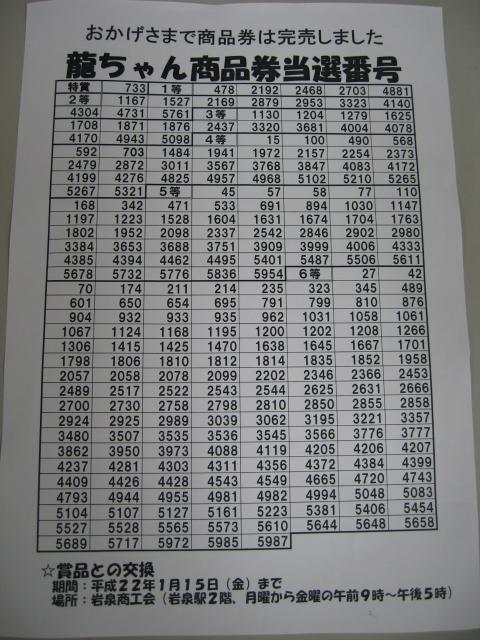 おかげさまで商品券は完売しました
龍ちゃん商品券当選番号
特賞 733 1等 478 2192 2468 2703 4881
2等 1167 1527 2169 2879 2953 3323 4140
4304 4731 5761 3等 1130 1204 1279 1625
1708 1871 1876 2437 3320 3681 4004 4078
4170 4943 5098 4等 15 100 490 568
592 703 1484 1941 1972 2157 2254 2373
2479 2872 3011 3567 3768 3847 4083 4172
4199 4276 4825 4957 4968 5102 5210 5265
5267 5321 5等 45 57 58 77 110
168 342 471 533 691 894 1030 1147
1197 1223 1528 1604 1631 1674 1704 1763
1802 1952 2098 2337 2542 2846 2902 2980
3384 3653 3688 3751 3909 3999 4006 4333
4385 4394 4462 4495 5401 5487 5506 5611
5678 5732 5776 5836 5954 6等 27 42
70 174 211 214 235 323 345 489
601 650 654 695 791 799 810 876
904 932 933 935 962 1031 1058 1061
1067 1124 1168 1195 1200 1202 1208 1266
1306 1415 1425 1470 1638 1645 1667 1701
1798 1806 1810 1812 1814 1835 1852 1958
2057 2058 2078 2099 2202 2346 2366 2453
2489 2517 2522 2543 2544 2625 2631 2666
2700 2730 2758 2798 2810 2850 2855 2858
2924 2925 2989 3039 3062 3195 3221 3357
3480 3507 3535 3536 3545 3566 3776 3777
3862 3950 3973 4088 4119 4205 4206 4207
4237 4281 4303 4311 4356 4372 4384 4399
4409 4426 4428 4543 4549 4665 4720 4743
4793 4944 4955 4981 4982 4994 5048 5083
5104 5107 5127 5161 5223 5381 5406 5454
5527 5528 5565 5573 5610 5644 5648 5658
5689 5717 5972 5985 5987
☆賞品との交換
期間：平成22年1月15日（金）まで
場所：岩泉商工会（岩泉駅2階、月曜から金曜の午前9時～午後5時）